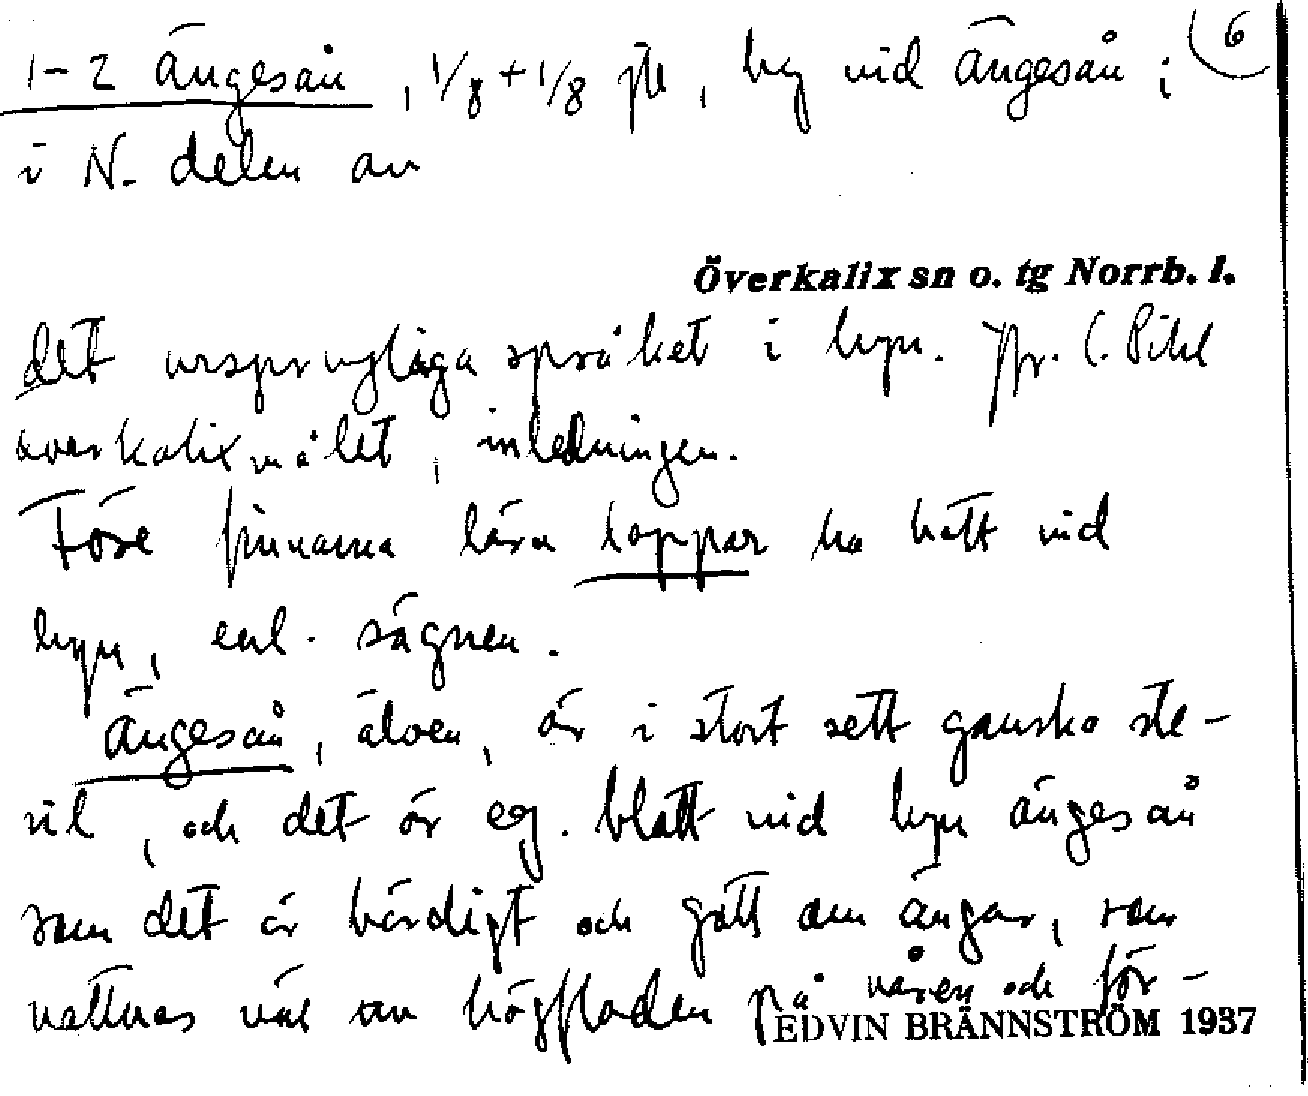 1-2 Ängesån, 1/8 + 1/8 mtl, by vid Ängesån i 6
i N. delen av
Överkalix sn o. tg Norrb. l.
det ursprungliga språket i byn. Jfr. C. Pihl
överkalixmålet, inledningen.
Före finnarna lära lappar ha hatt vid
byn, enl. sägnen.
Ängesån, älven, är i stort sett ganska ste-
ril, och det är eg. blott vid byn Ängesån
som det är bördigt och gott om ängar, som
vattnas väl av högfloden på våren och för-
EDVIN BRÄNNSTRÖM 1937